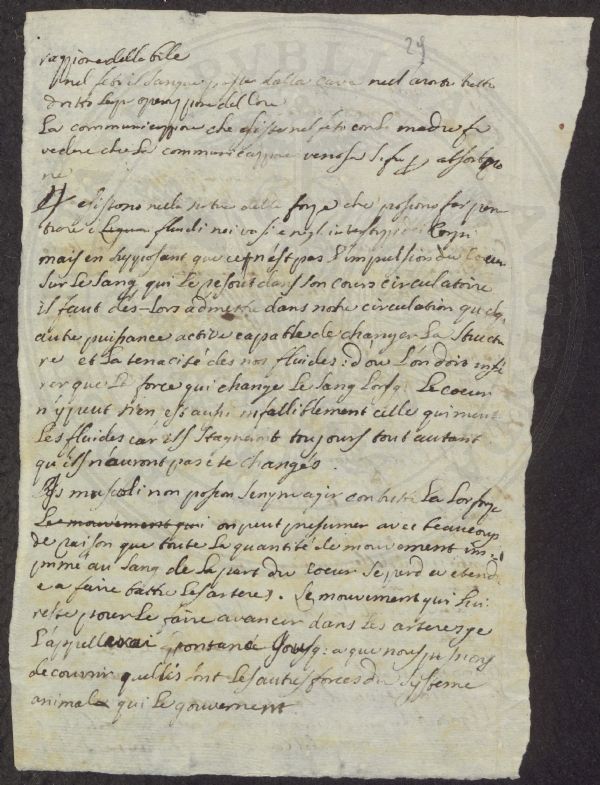 29
raggione della bile
nel feto il sangue passa dalla cava nell aorta
dritto operazzione del Cuore
La communicazzione che esiste nel feto con la madre fa
vedere che La communicazzione venosa si fa p absorbzio
ne
esistono nella natura delle forze che possono far pene
trare i fluidi nei vasi e negl interstizi Corpi
mais en supposant que ce n'est pas L'impulsion du Coeur
sur Le sang qui Le dans son cours circulatoire
il faut dès-Lors admettre dans notre circulation quelq
autre puissance active capable de changer La Structu
re et La tenacité des nos fluides: d'ou L'on doit infe
rer que La force qui change Le sang Lorsq: Le coeur
n'y peut rien est aussi infalliblement celle qui meut
Les fluides car ils Stagneront toujours tout autant
qu'ils n'auront pas été changés.
I muscoli non posson sempre agir con tutta La Lor forza
Le mouvement qui on peut presumer avec beaucoup
de raison que toute La quantité de mouvement im
primé au Sang de La part du Coeur se perd a etend
e a faire battre Les arteres. Le mouvement qui Lui
reste pour Le faire avancer dans Les arteres je
L'appellerai spontané jousq: a que nous puissions
decouvrir quelles sont Les autres forces du Systeme
animal qui Le gouvernent.